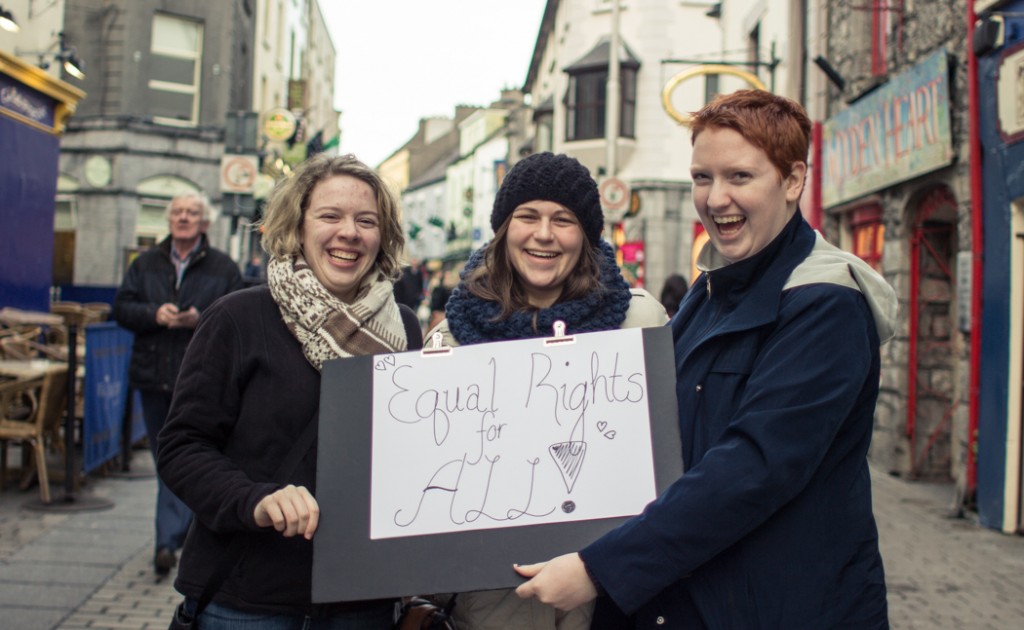 Equal Rights
for
ALL!
WOODEN HEART